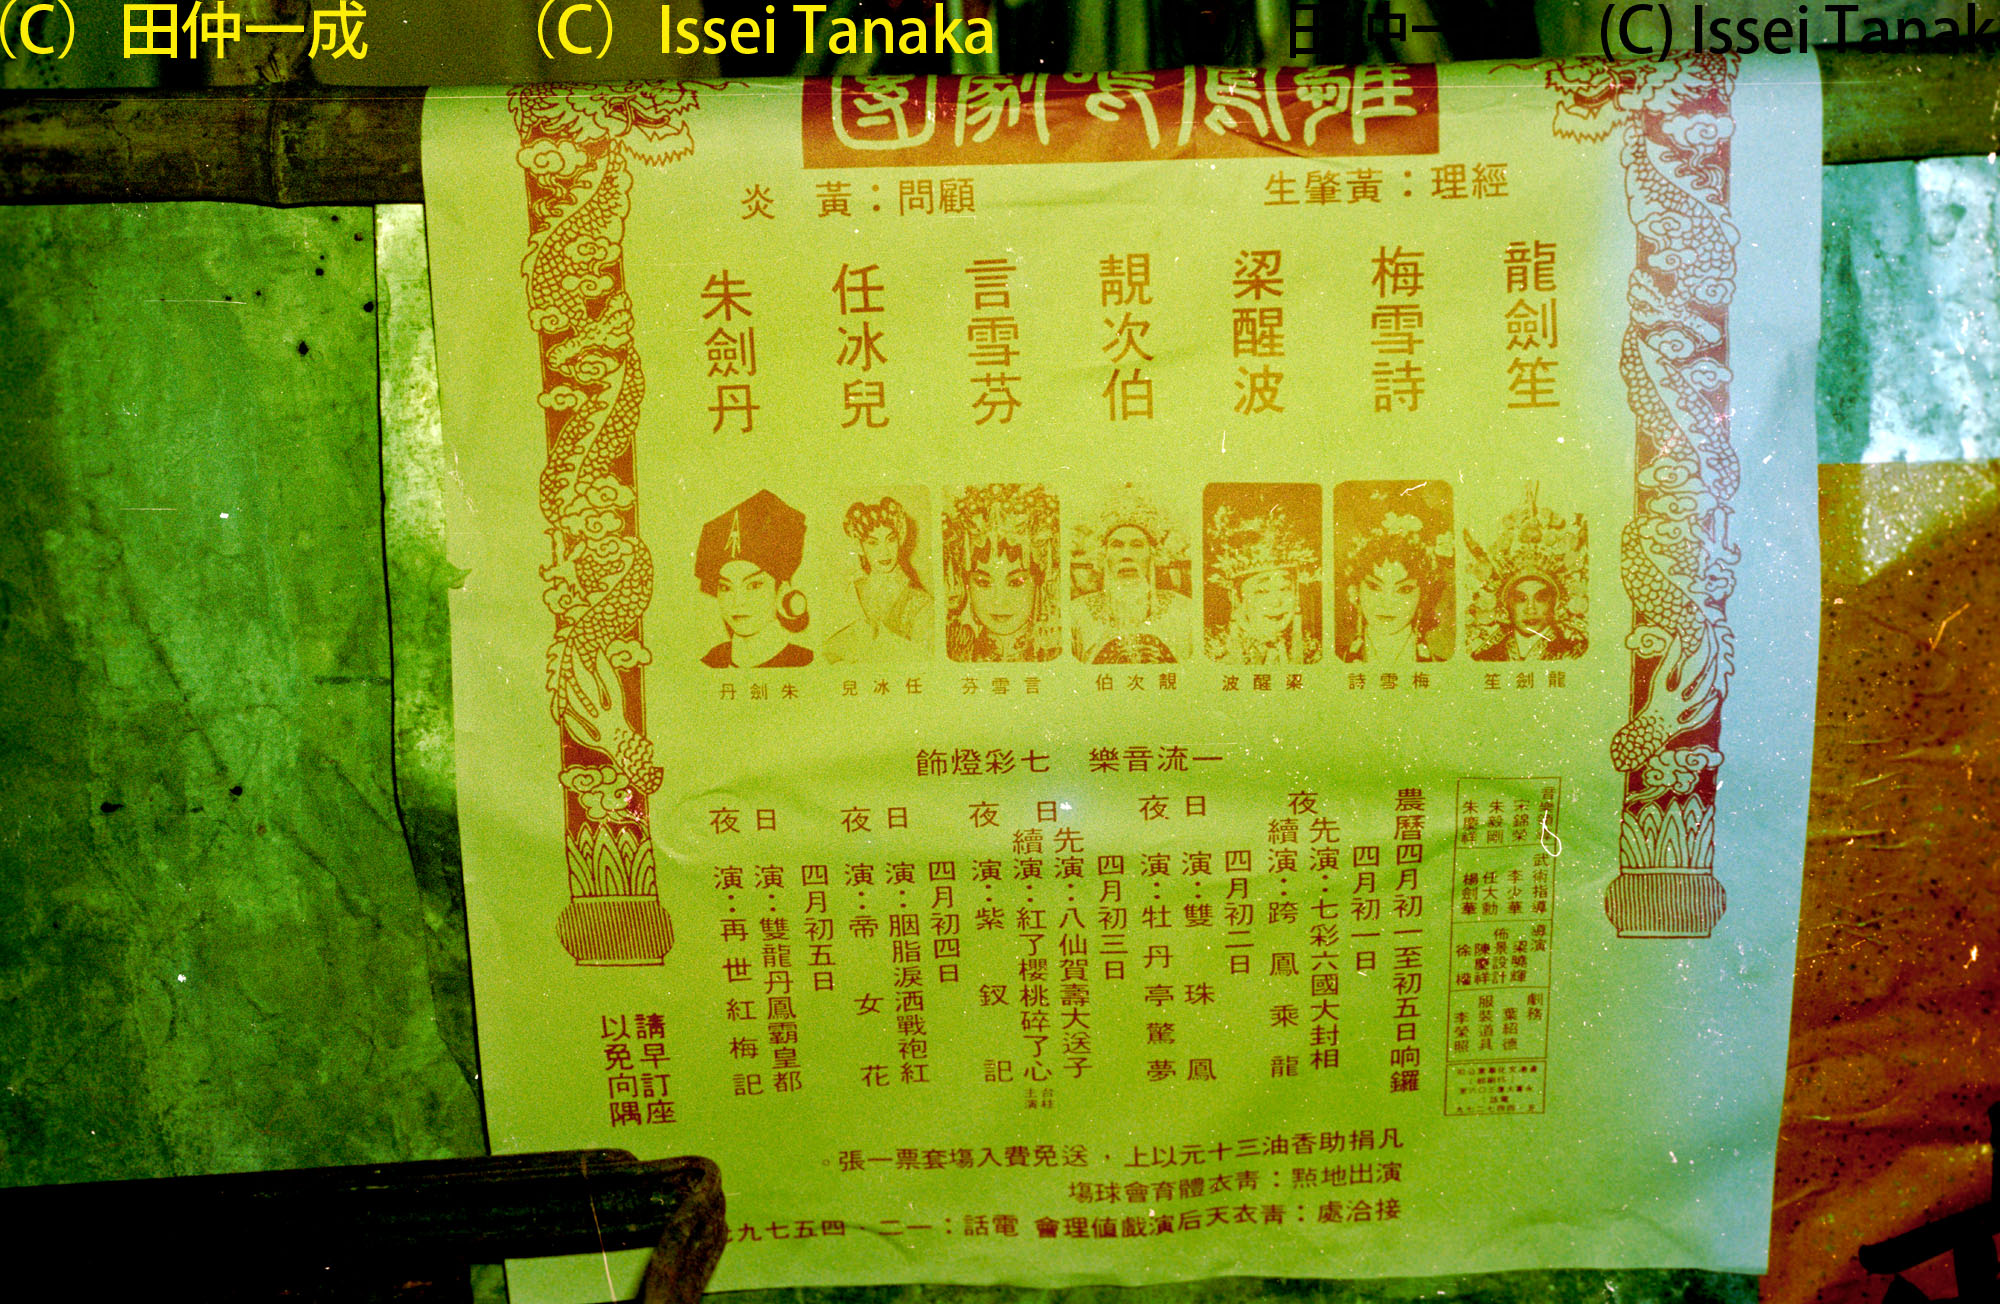 (C) 田仲一成 (C) Issei Tanaka
(C) Issei Tanak
雛鳳鳴劇團
經理：黃肇生
顧問：黃 炎
龍劍笙
梅雪詩
梁醒波
靚次伯
言雪芬
任冰兒
朱劍丹
龍劍笙
梅雪詩
梁醒波
靚次伯
言雪芬
任冰兒
朱劍丹
一流音樂 七彩燈飾
宋錦榮
朱毅剛
朱慶祥
武術指導
李少華
任大勳
楊劍華
導演
梁曉輝
佈景設計
陳慶祥
徐權
劇務
葉紹德
服裝道具
李榮照
農曆四月初一至初五日响鑼
四月初一日
夜
先演：七彩六國大封相
續演：跨鳳乘龍
四月初二日
日演：雙珠鳳
夜演：牡丹亭驚夢
四月初三日
日
先演：八仙賀壽大送子
續演：紅了櫻桃碎了心
台柱主演
夜演：紫釵記
四月初四日
日演：胭脂淚洒戰袍紅
夜演：帝女花
四月初五日
日演：雙龍丹鳳霸皇都
夜演：再世紅梅記
請早訂座
以免向隅
凡捐助香油三十元以上，送免費入場套票一張。
演出地點：青衣體育會球場
接洽處：青衣天后演戲值理會 電話：一二・四五七九